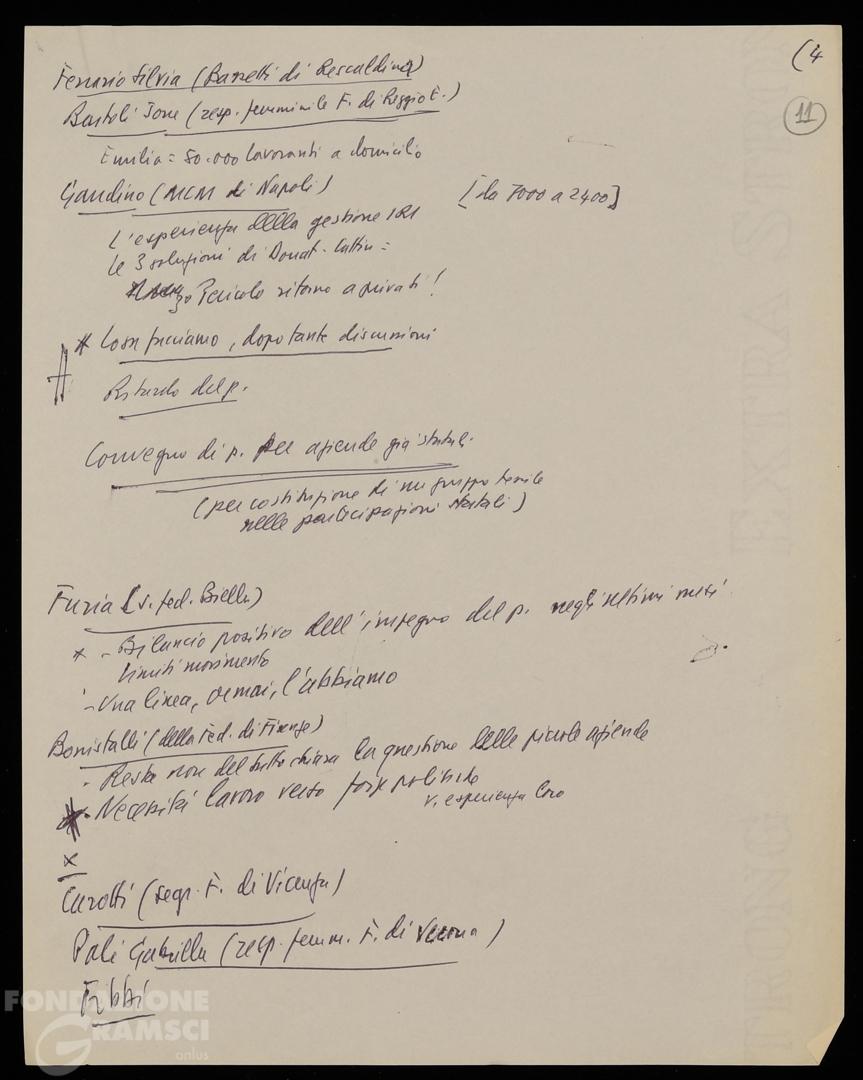 (4
11
Ferrario Silvia (Bassetti di Rescaldina)
Bartoli Ione (resp. femminile F. di Reggio E.)
Emilia = 50.000 lavoranti a domicilio
Gaudino (MCM di Napoli) [da 7000 a 2400]
L'esperienza della gestione IRI
Le 3 soluzioni di Donat-Cattin =
Pericolo ritorno a privati!
* Cosa facciamo, dopo tante discussioni
Ritardo del p.
Convegno di p. per aziende già statali.
(per costituzione di un gruppo tessile
nelle partecipazioni statali)
Furia (v. fed. Biella)
x - Bilancio positivo dell'impegno del p. negli ultimi mesi
limiti movimento
- Una linea, ormai, l'abbiamo
Bonistalli (della Fed. di Firenze)
- Resta non del tutto chiara la questione delle piccole aziende
- Necessità lavoro verso forze politiche
v. esperienza loro
x
Carotti (segr. F. di Vicenza)
Poli Gabriella (resp. femm. F. di Verona)
Fibbi
FONDAZIONE
GRAMSCI
onlus
EXTRA STRONG